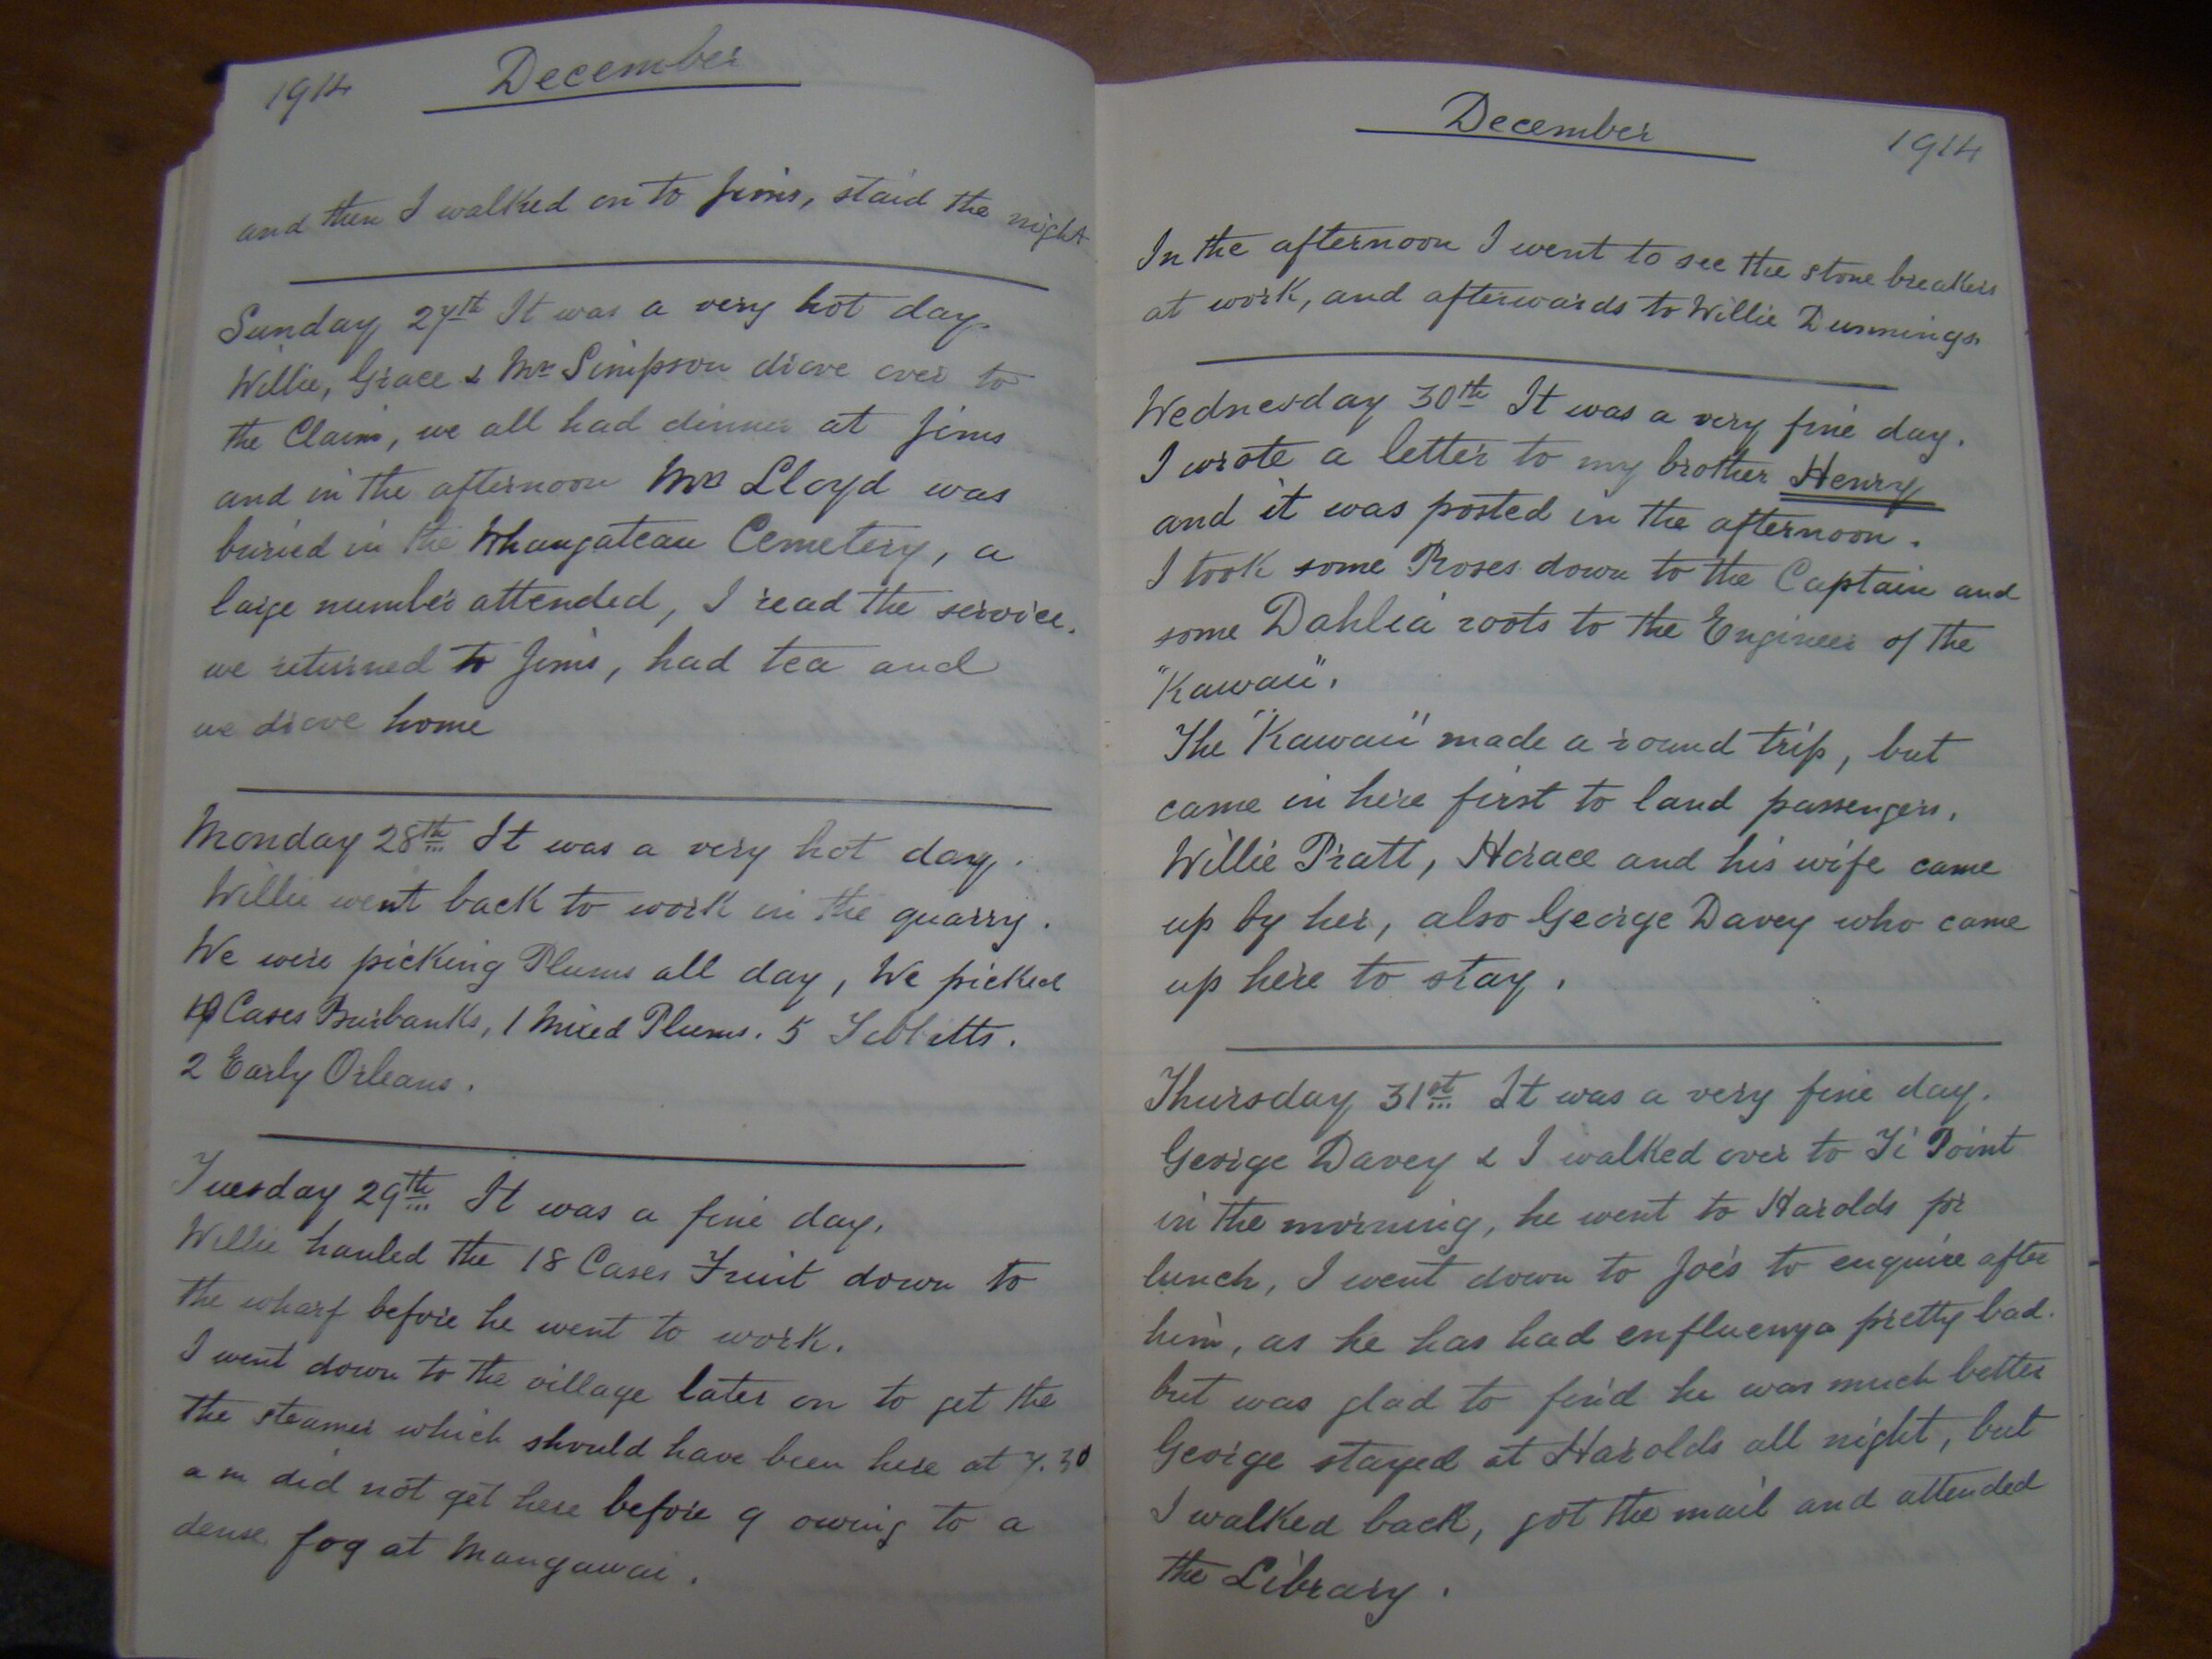 1914 December
and then I walked on to Jims, staid the night
Sunday 27th It was a very hot day.
Willie, Grace & Mr Simpson drove over to
the Claim, we all had dinner at Jims
and in the afternoon Mrs Lloyd was
buried in the Whangateau Cemetery, a
large number attended, I read the service.
we returned to Jims, had tea and
we drove home
Monday 28th It was a very hot day.
Willie went back to work in the quarry.
We were picking Plums all day, We picked
10 Cases Burbanks, 1 Mixed Plums. 5 Tibbitts.
2 Early Orleans.
Tuesday 29th It was a fine day.
Willie hauled the 18 Cases Fruit down to
the wharf before he went to work.
I went down to the village later on to get the
the steamer which should have been here at 7.30
a m did not get here before 9 owing to a
dense fog at Mangawai.
December 1914
In the afternoon I went to see the stone breakers
at work, and afterwards to Willie Dunnings.
Wednesday 30th It was a very fine day.
I wrote a letter to my brother Henry
and it was posted in the afternoon.
I took some Roses down to the Captain and
some Dahlia roots to the Engineer of the
"Kawau".
The "Kawau" made a round trip, but
came in here first to land passengers.
Willie Pratt, Horace and his wife came
up by her, also George Davey who came
up here to stay.
Thursday 31st It was a very fine day.
George Davey & I walked over to Ti Point
in the morning, he went to Harolds for
lunch, I went down to Joe's to enquire after
him, as he has had enfluenza pretty bad.
but was glad to find he was much better
George stayed at Harolds all night, but
I walked back, got the mail and attended
the Library.